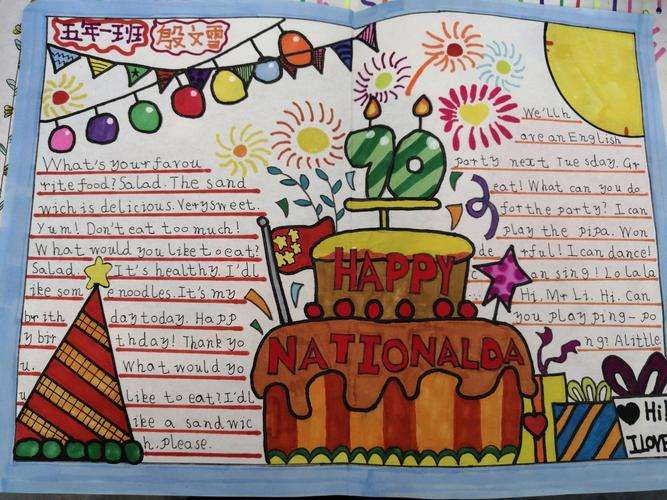 五年一班 殷文雪
What's your favou
rite food? Salad. The sand
wich is delicious. Very sweet.
Yum! Don't eat too much!
What would you like to eat?
Salad. It's healthy. I'dl
ike som e noodles. It's my
birth day today. Happ
y bir thday! Thank yo
u. What would yo
u like to eat? I'dl
ike a sandwic
h. Please.
90
HAPPY
NATIONALDA
We'll h
are an English
party next Tuesday. Gr
eat! What can you do
for the party? I can
play the pipa. Won
de rful! I can dance!
an sing! Lolala
.... Hi, Mr Li. Hi. Can
you play ping-po
ng? A little
Hi!
I LOVE